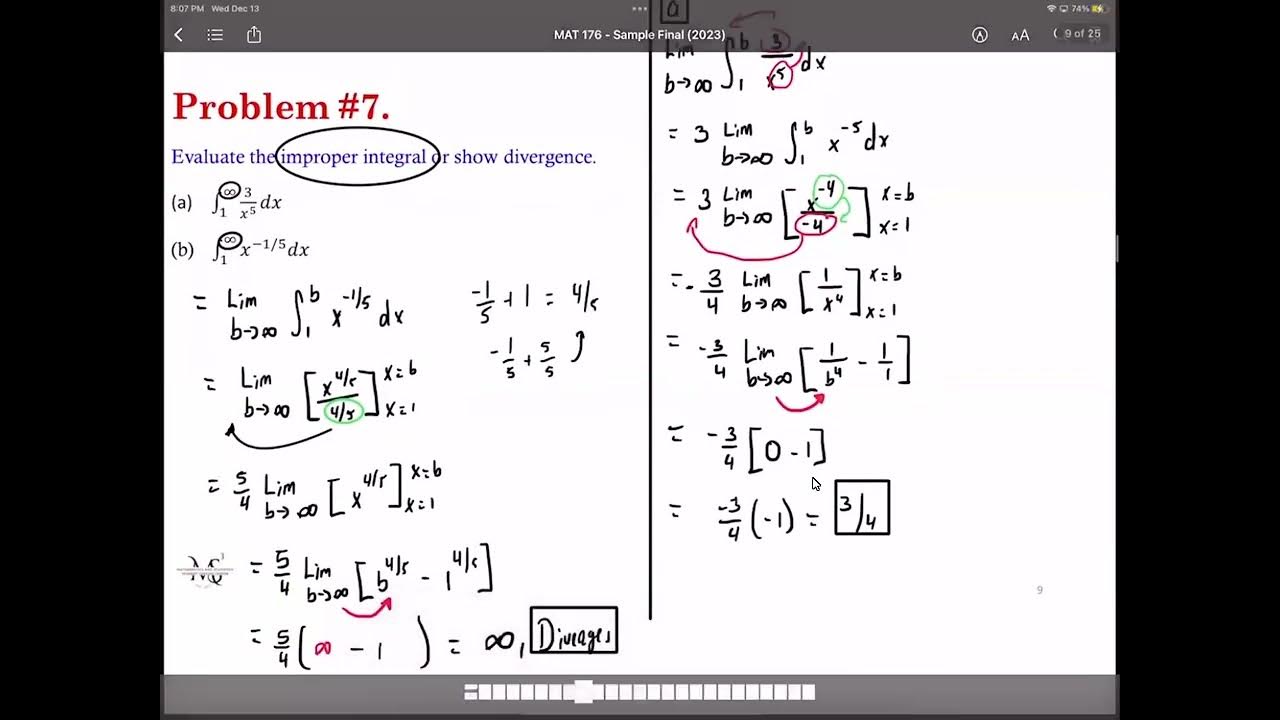 8:07 PM Wed Dec 13
74%
MAT 176 - Sample Final (2023)
AA
9 of 25
Problem #7.
Evaluate the improper integral or show divergence.
(a) ∫₁^∞ 3/x⁵ dx
(b) ∫₁^∞ x^(−1/5) dx
= Lim b→∞ ∫₁^b x^(-1/5) dx
-1/5 + 1 = 4/5
-1/5 + 5/5
= Lim b→∞ [x^(4/5) / (4/5)] x=b x=1
= 5/4 Lim b→∞ [x^(4/5)] x=b x=1
= 5/4 Lim b→∞ [b^(4/5) - 1^(4/5)]
= 5/4 (∞ - 1) = ∞, Diverges
a
Lim b→∞ ∫₁^b 3/x⁵ dx
= 3 Lim b→∞ ∫₁^b x^(-5) dx
= 3 Lim b→∞ [x^(-4) / -4] x=b x=1
= -3/4 Lim b→∞ [1/x⁴] x=b x=1
= -3/4 Lim b→∞ [1/b⁴ - 1/1]
= -3/4 [0 - 1]
= -3/4 (-1) = 3/4
9